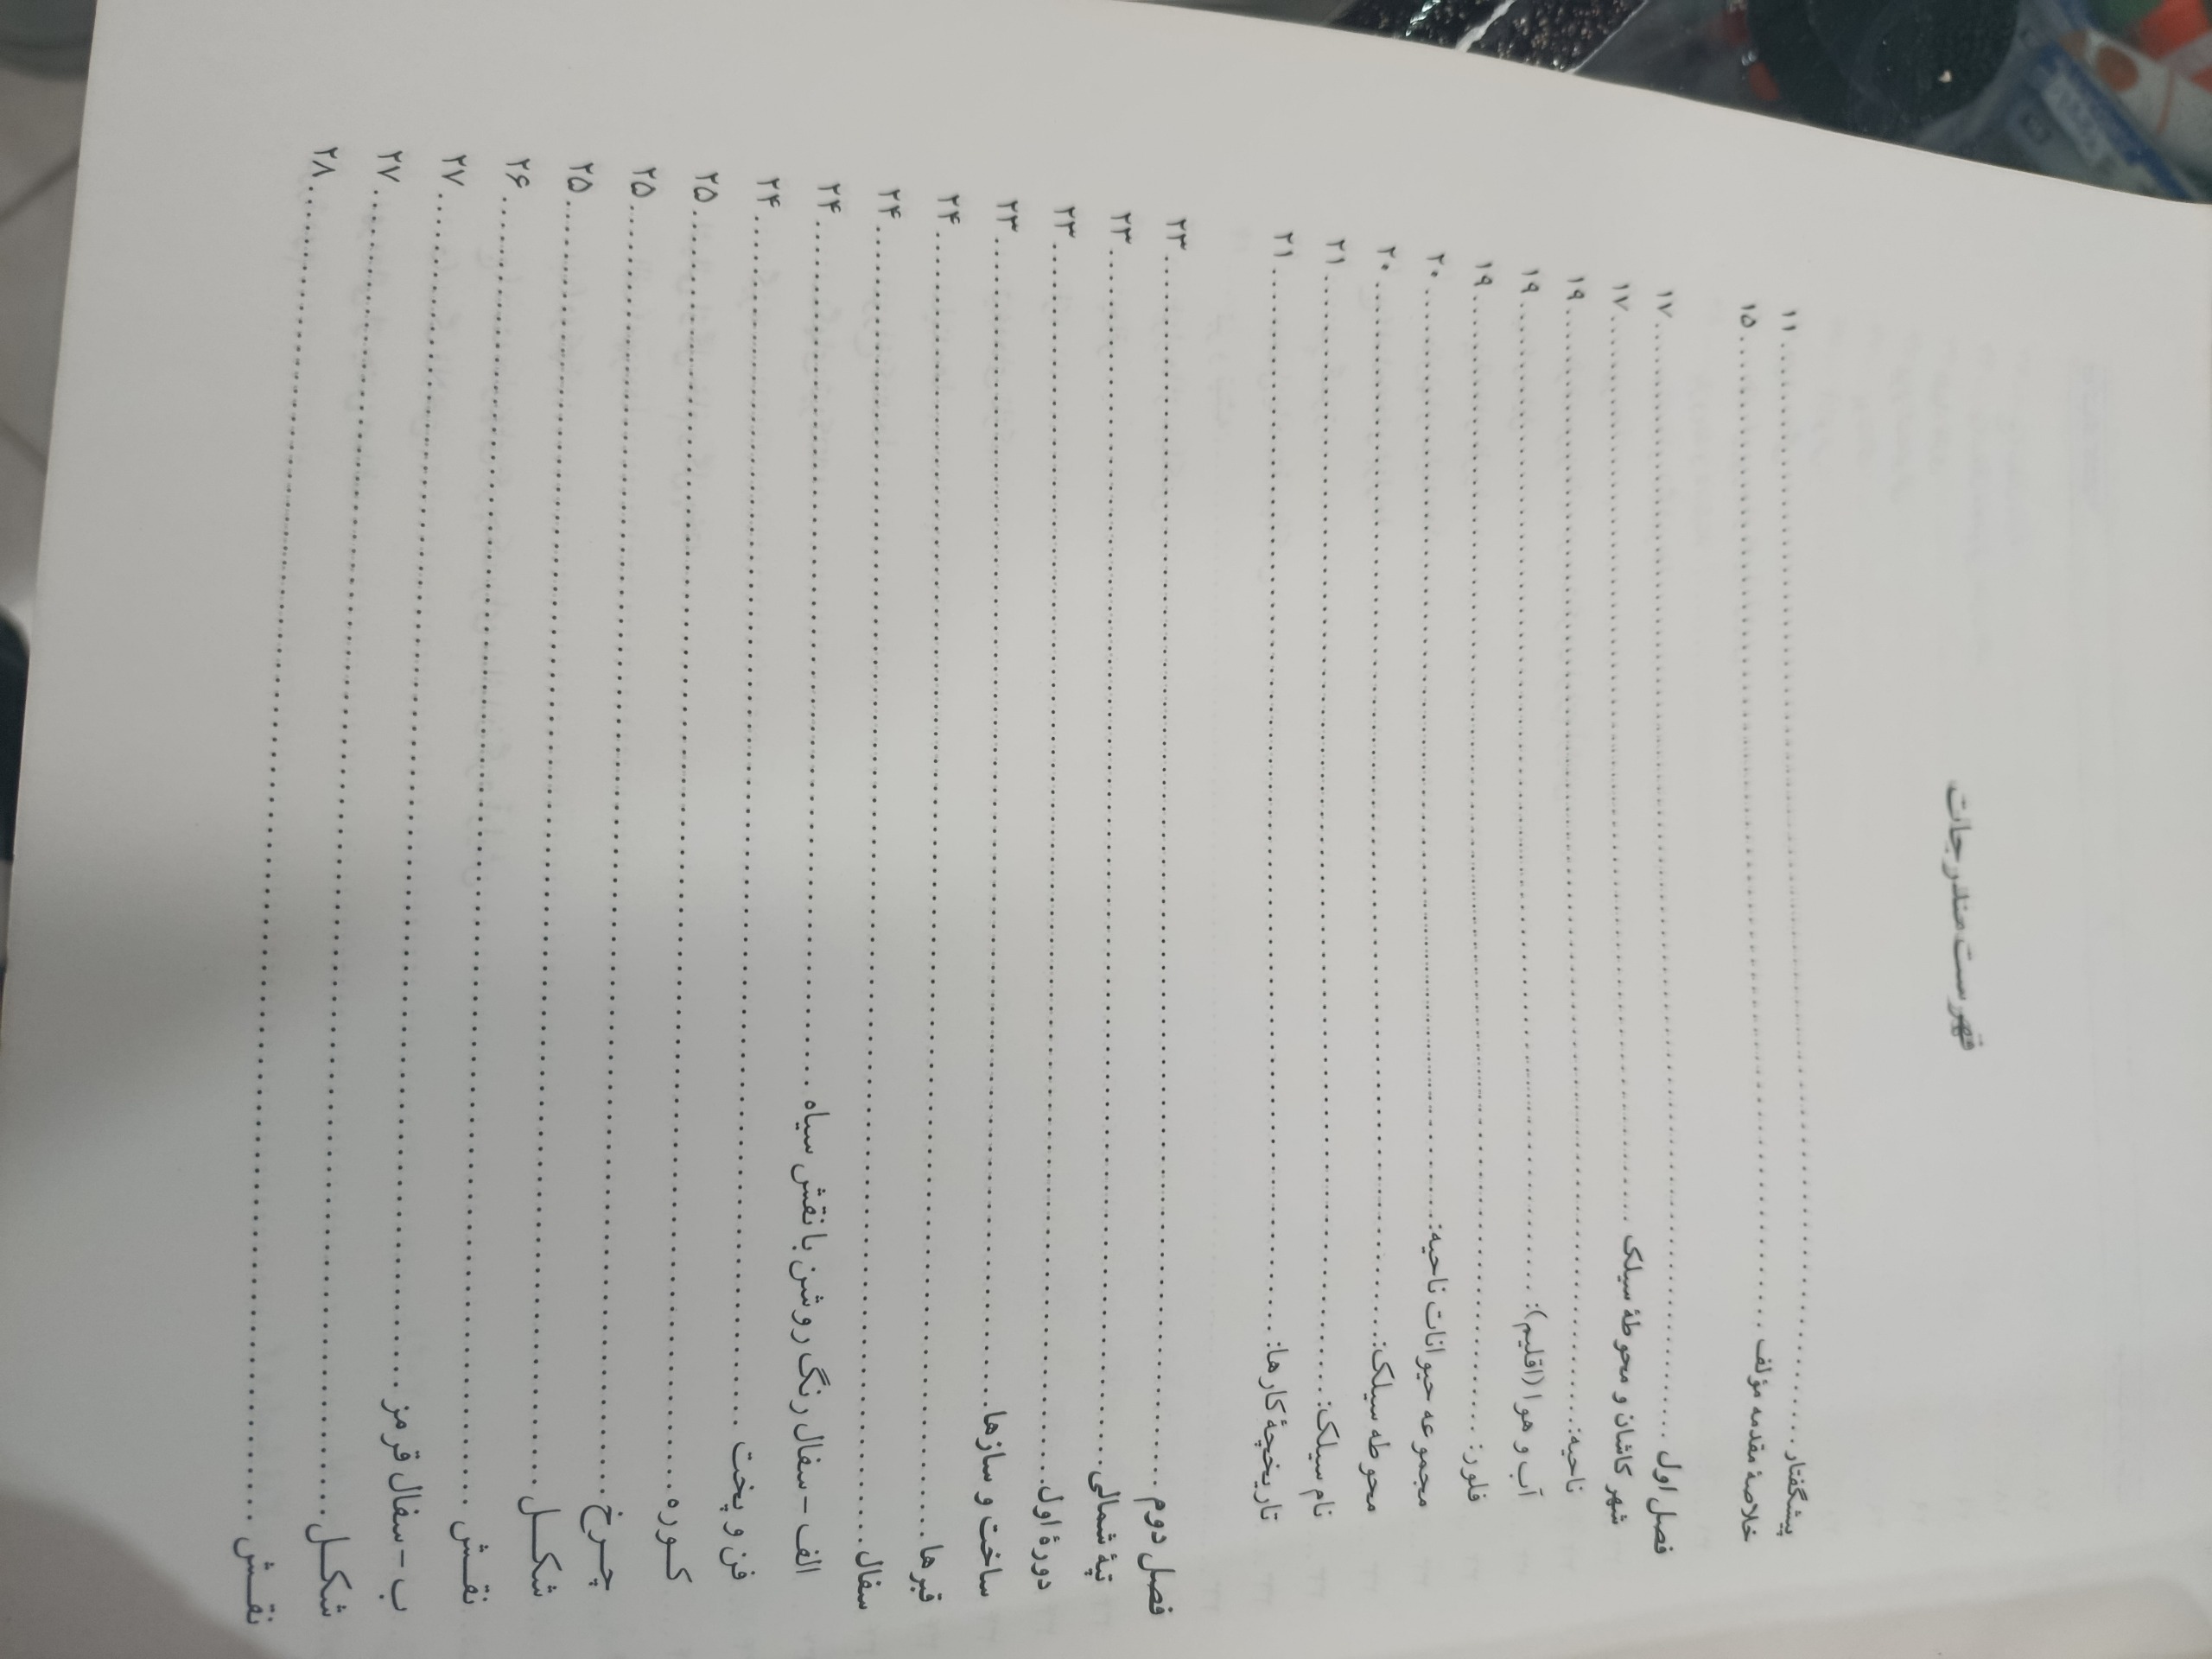 فهرست مندرجات
پیشگفتار ........ ۱۱
خلاصهٔ مقدمه مؤلف ........ ۱۵
فصل اول ........ ۱۷
شهر کاشان و محوطهٔ سیلک ........ ۱۷
ناحیه: ........ ۱۹
آب و هوا (اقلیم): ........ ۱۹
فلور: ........ ۱۹
مجموعه حیوانات ناحیه: ........ ۲۰
محوطه سیلک: ........ ۲۰
نام سیلک: ........ ۲۱
تاریخچهٔ کارها: ........ ۲۱
فصل دوم ........ ۲۳
تپهٔ شمالی ........ ۲۳
دورهٔ اول ........ ۲۳
ساخت و سازها ........ ۲۳
قبرها ........ ۲۴
سفال ........ ۲۴
الف - سفال رنگ روشن با نقش سیاه ........ ۲۴
فن و پخت ........ ۲۴
کوره ........ ۲۵
چرخ ........ ۲۵
شکل ........ ۲۵
نقش ........ ۲۶
ب - سفال قرمز ........ ۲۷
شکل ........ ۲۷
نقش ........ ۲۸